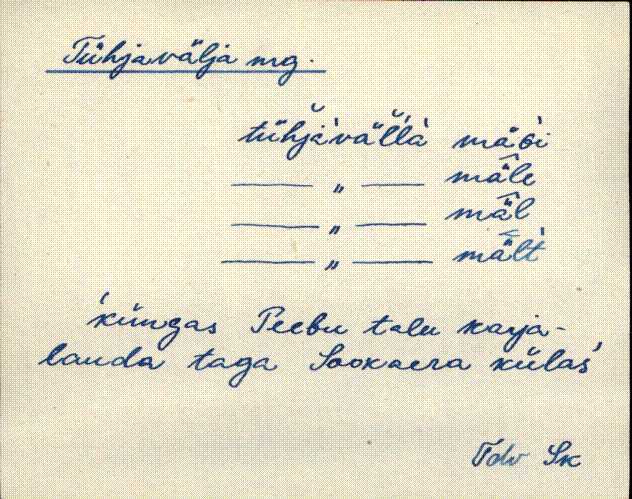 Tühjavälja mg.
tühjàvällà mäGi
— „ — mäle
— „ — mäl
— „ — mält
'küngas Peebu talu karja-
lauda taga Sookaera külas'
Tdv Sk